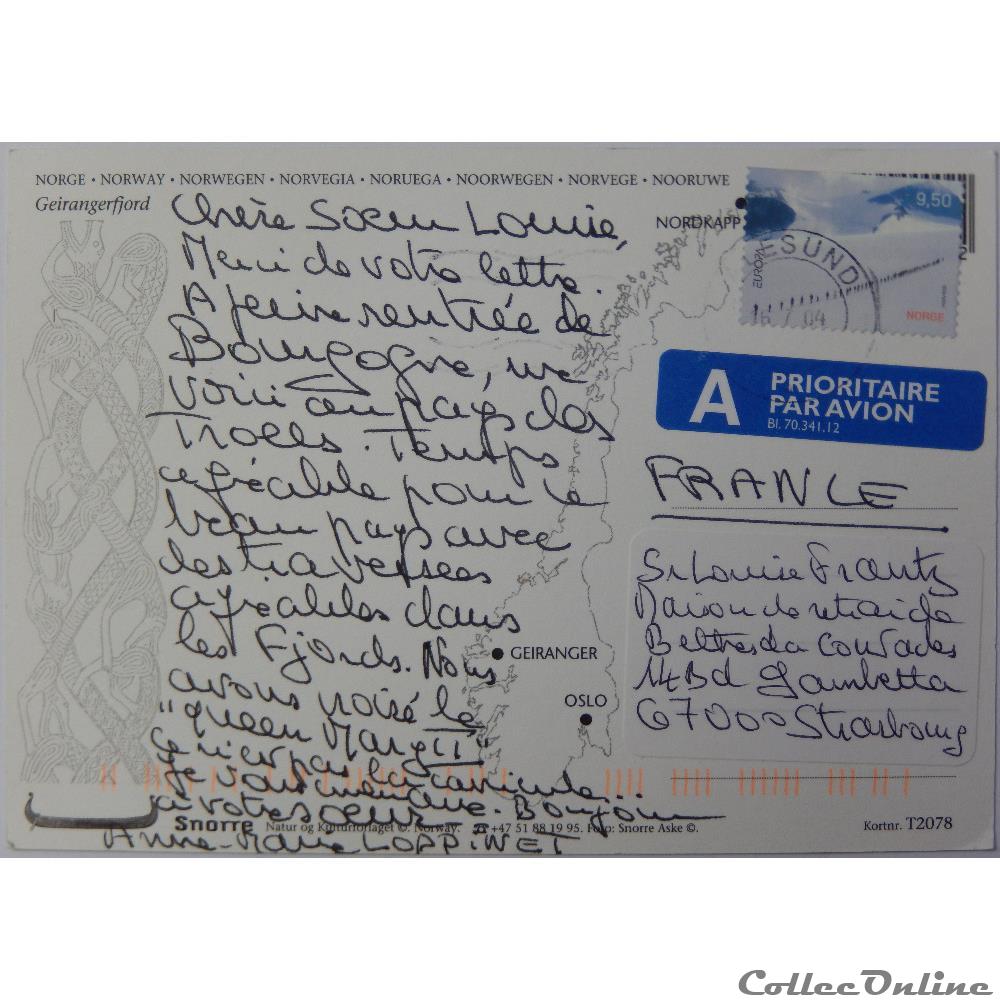 NORGE • NORWAY • NORWEGEN • NORVEGIA • NORUEGA • NOORWEGEN • NORVEGE • NOORUWE
Geirangerfjord
Chère Soeur Louise,
Merci de votre lettre.
A peine rentrée de
Bourgogne, me
voici au pays des
Trolls. Temps
agréable pour le
beau pays avec
des traversées
agréables dans
les Fjords. Nous
avons croisé le
"queen Mary II"
ce n'est pas
Bonjour
à votre soeur
Anne-Marie LOPPINET
NORDKAPP
GEIRANGER
OSLO
9,50
EUROPA
NORGE
SUND
16 7 04
A PRIORITAIRE
PAR AVION
Bl. 70.341.12
FRANCE
Sr Louise Frantz
Maison de retraite
Bethesda Contades
14 Bd Gambetta
67000 Strasbourg
Snorre Natur og Kulturforlaget ©. Norway. ☎ +47 51 88 19 95. Foto: Snorre Aske ©.
Kortnr. T2078
CollecOnline